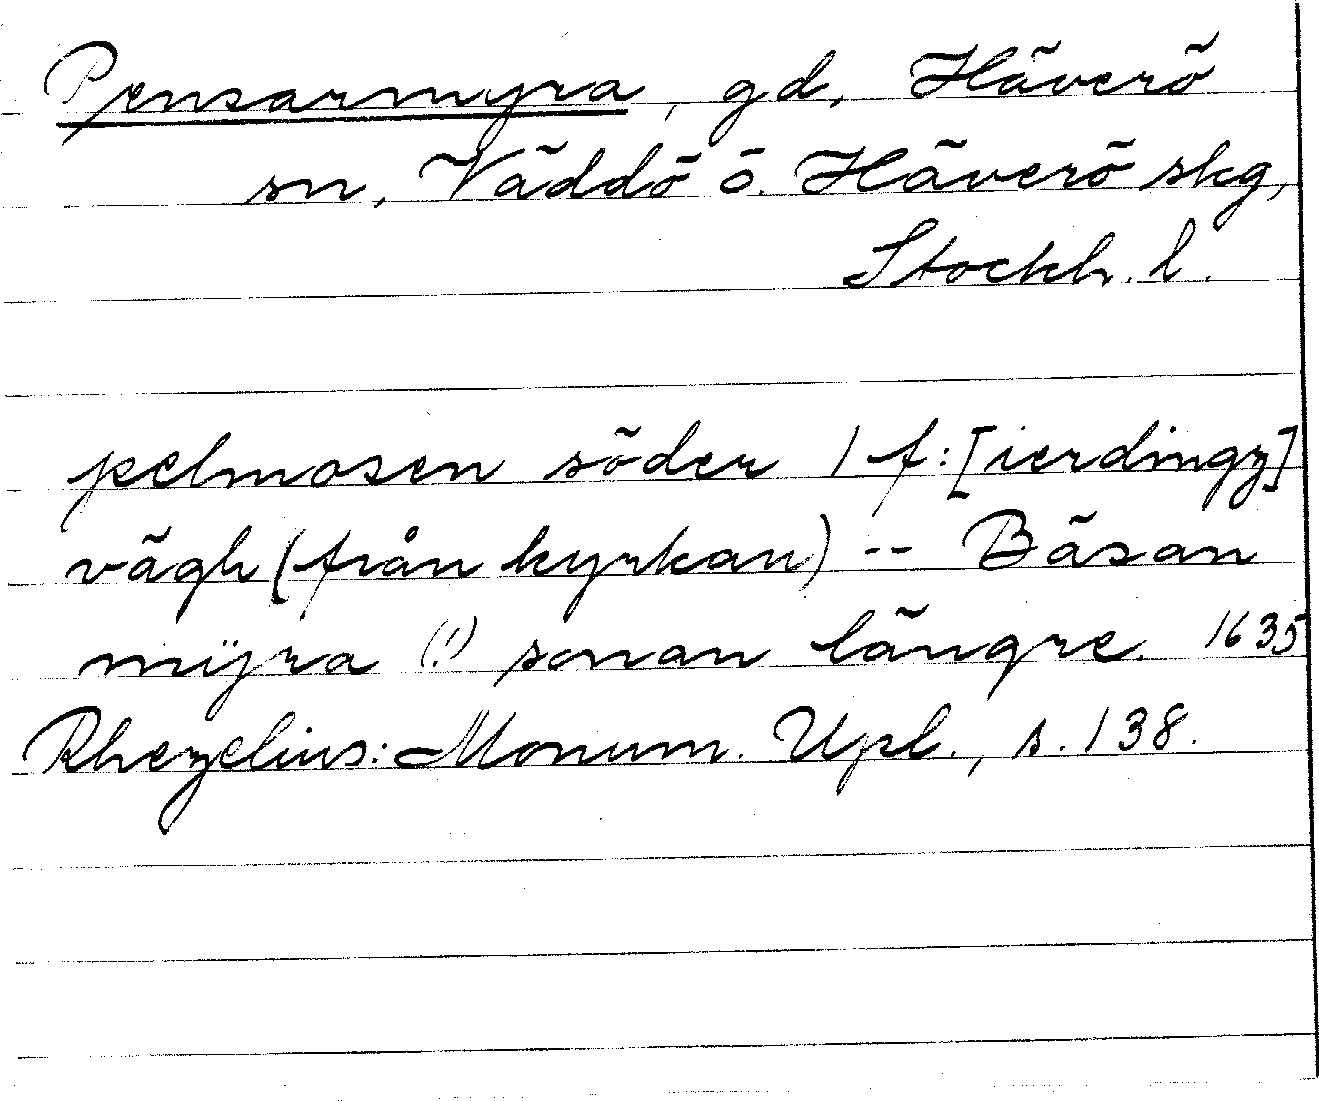 Pensarmyra, gd, Häverö
sn, Väddö o. Häverö skg,
Stockh. l.
pelmosen söder 1 f:[ierdingz]
vägh (från kyrkan) -- Bäsan
mÿra (!) sonan längre. 1635
Rhezelius: Monum. Upl., s. 138.